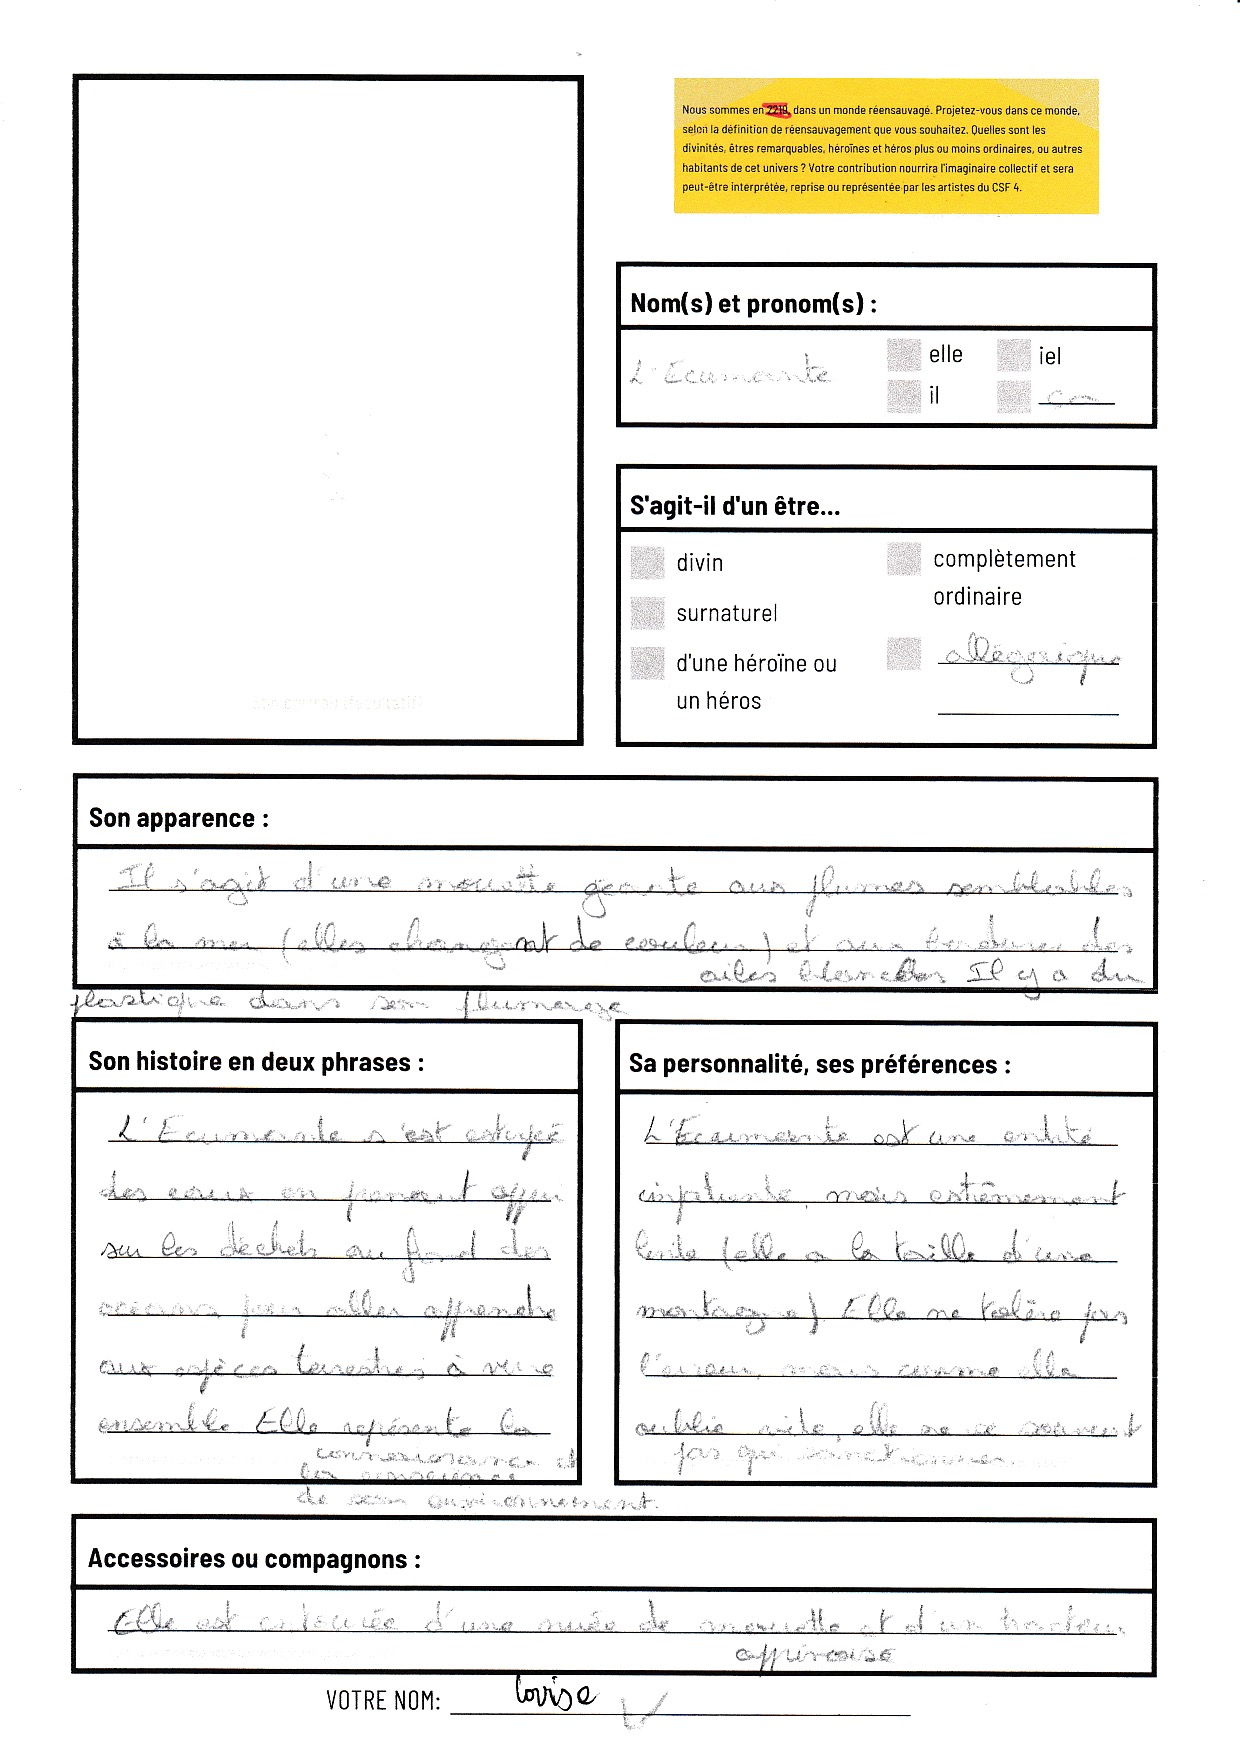 Nous sommes en 2210, dans un monde réensauvagé. Projetez-vous dans ce monde,
selon la définition de réensauvagement que vous souhaitez. Quelles sont les
divinités, êtres remarquables, héroïnes et héros plus ou moins ordinaires, ou autres
habitants de cet univers ? Votre contribution nourrira l'imaginaire collectif et sera
peut-être interprétée, reprise ou représentée par les artistes du CSF 4.
Nom(s) et pronom(s) :
L'Ecumante
elle
iel
il
Son portrait (facultatif)
S'agit-il d'un être...
divin
complètement
ordinaire
surnaturel
d'une héroïne ou
un héros
allégorique
Son apparence :
Il s'agit d'une mouette géante aux plumes semblables
à la mer (elles changent de couleur) et aux bordures des
ailes blanches Il y a du
plastique dans son plumage
Son histoire en deux phrases :
L'Ecumante s'est extirpé
des eaux en prenant appui
sur les déchets au fond des
océans pour aller apprendre
aux espèces terrestres à vivre
ensemble Elle représente la
connaissance et
de son environnement.
Sa personnalité, ses préférences :
L'Ecumante est une entité
mais extrêmement
lente (elle a la taille d'une
montagne) Elle ne tolère pas
l'erreur, mais comme elle
oublie vite, elle ne se souvient
pas qui sanctionner.
Accessoires ou compagnons :
Elle est entourée d'une nuée de mouette et d'un
VOTRE NOM: Louise